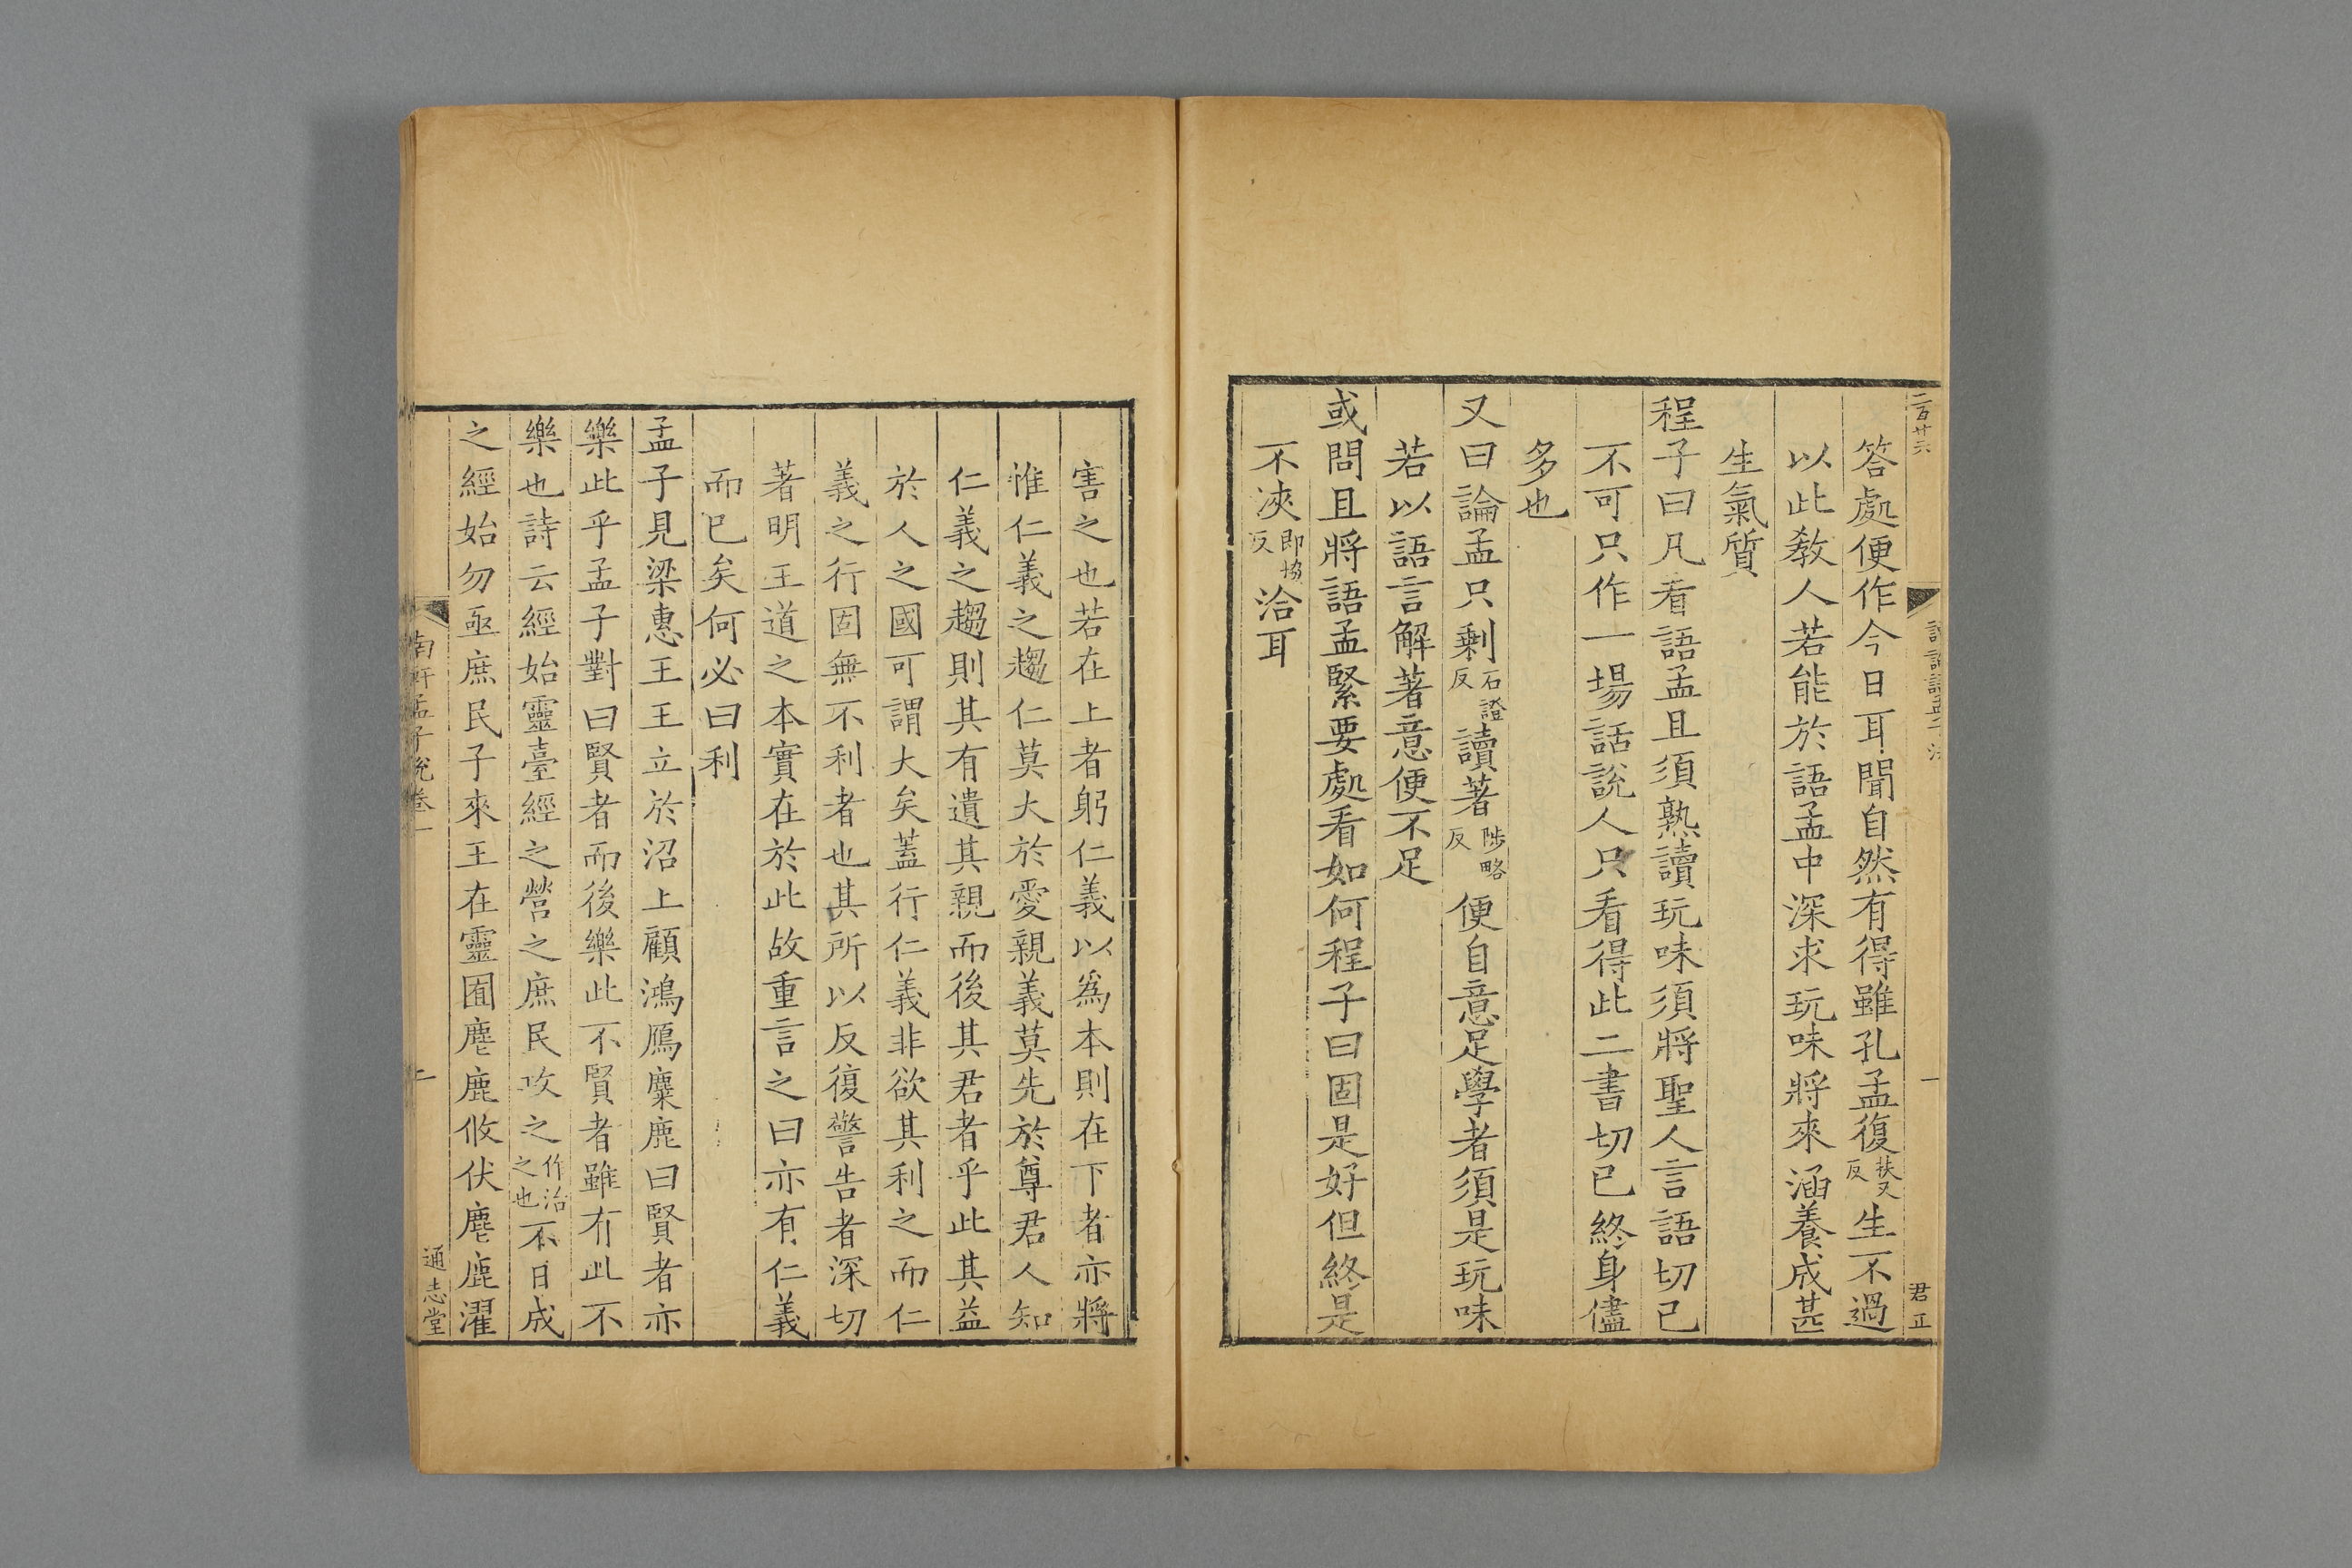 二百廿六
君正
答處便作今日耳聞自然有得雖孔孟復扶又反生不過
以此敎人若能於語孟中深求玩味將來涵養成甚
生氣質
程子曰凡看語孟且須熟讀玩味須將聖人言語切己
不可只作一場話說人只看得此二書切己終身儘
多也
又曰論孟只剩石證反讀著陟略反便自意足學者須是玩味
若以語言解著意便不足
或問且將語孟緊要處看如何程子曰固是好但終是
不浹即協反洽耳
害之也若在上者躬仁義以爲本則在下者亦將
惟仁義之趨仁莫大於愛親義莫先於尊君人知
仁義之趨則其有遺其親而後其君者乎此其益
於人之國可謂大矣蓋行仁義非欲其利之而仁
義之行固無不利者也其所以反復警告者深切
著明王道之本實在於此故重言之曰亦有仁義
而已矣何必曰利
孟子見梁惠王王立於沼上顧鴻鴈麋鹿曰賢者亦
樂此乎孟子對曰賢者而後樂此不賢者雖有此不
樂也詩云經始靈臺經之營之庶民攻之作治之也不日成
之經始勿亟庶民子來王在靈囿麀鹿攸伏麀鹿濯
南軒孟子說卷一
二
通志堂